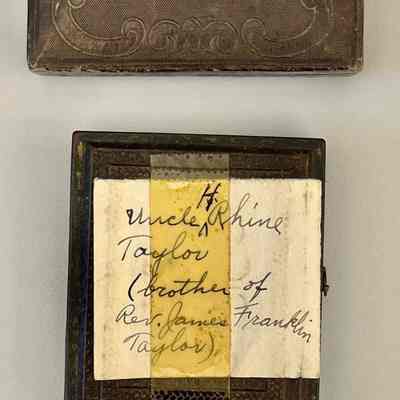 Uncle H. Rhine
Taylor
(brother of
Rev. James Franklin
Taylor)